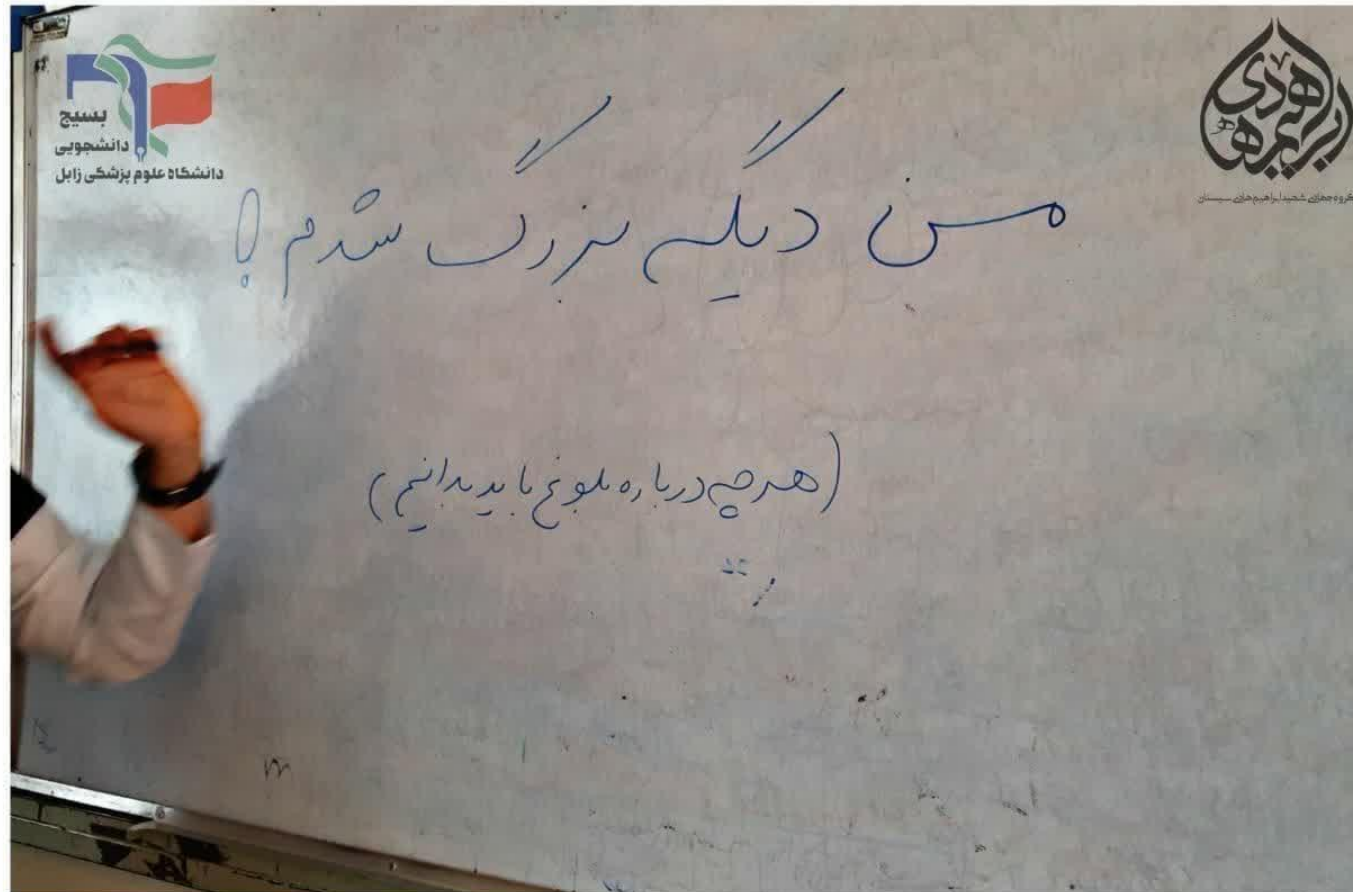 بسیج
دانشجویی
دانشگاه علوم پزشکی زابل
ابراهیم هادی
گروه جهادی شهید ابراهیم هادی سیستان
من دیگه بزرگ شدم!
(هر چه درباره بلوغ باید بدانیم)